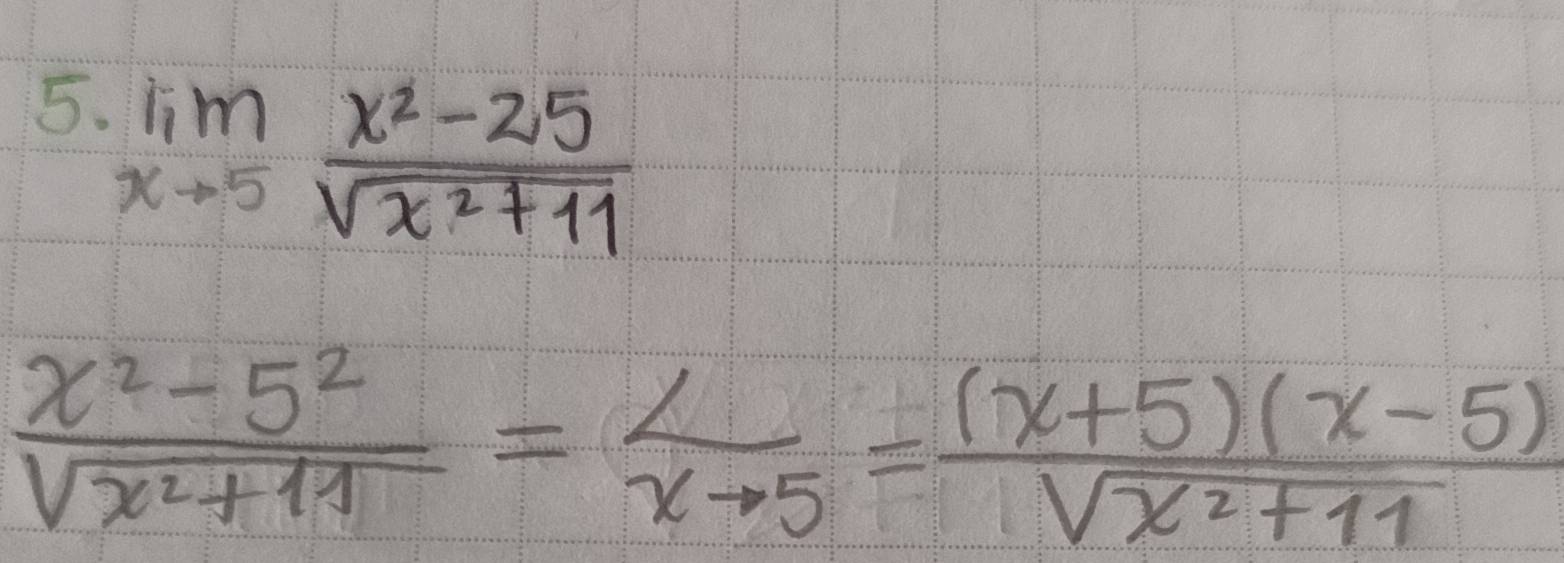 5. lim x→5 x²-25 / √x²+11
x²-5² / √x²+11 = ∠ x→5 = (x+5)(x-5) / √x²+11